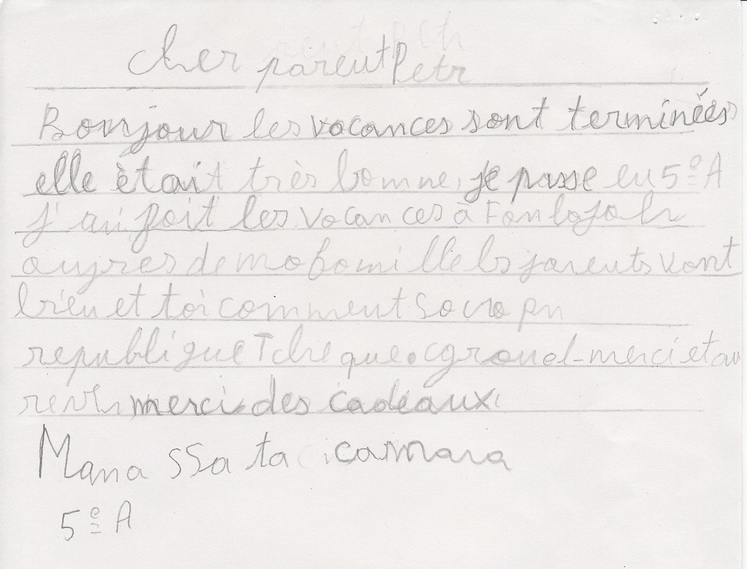 cher parent Petr
Bonjour les vacances sont terminées
elle ètait très bonne, je passe en 5e A
j'ai fait les vacances à
aupres de ma famille les parents vont
bien et toi comment sa va en
republique Tcheque grand-merci et au
merci des cadeaux
Manassata camara
5e A